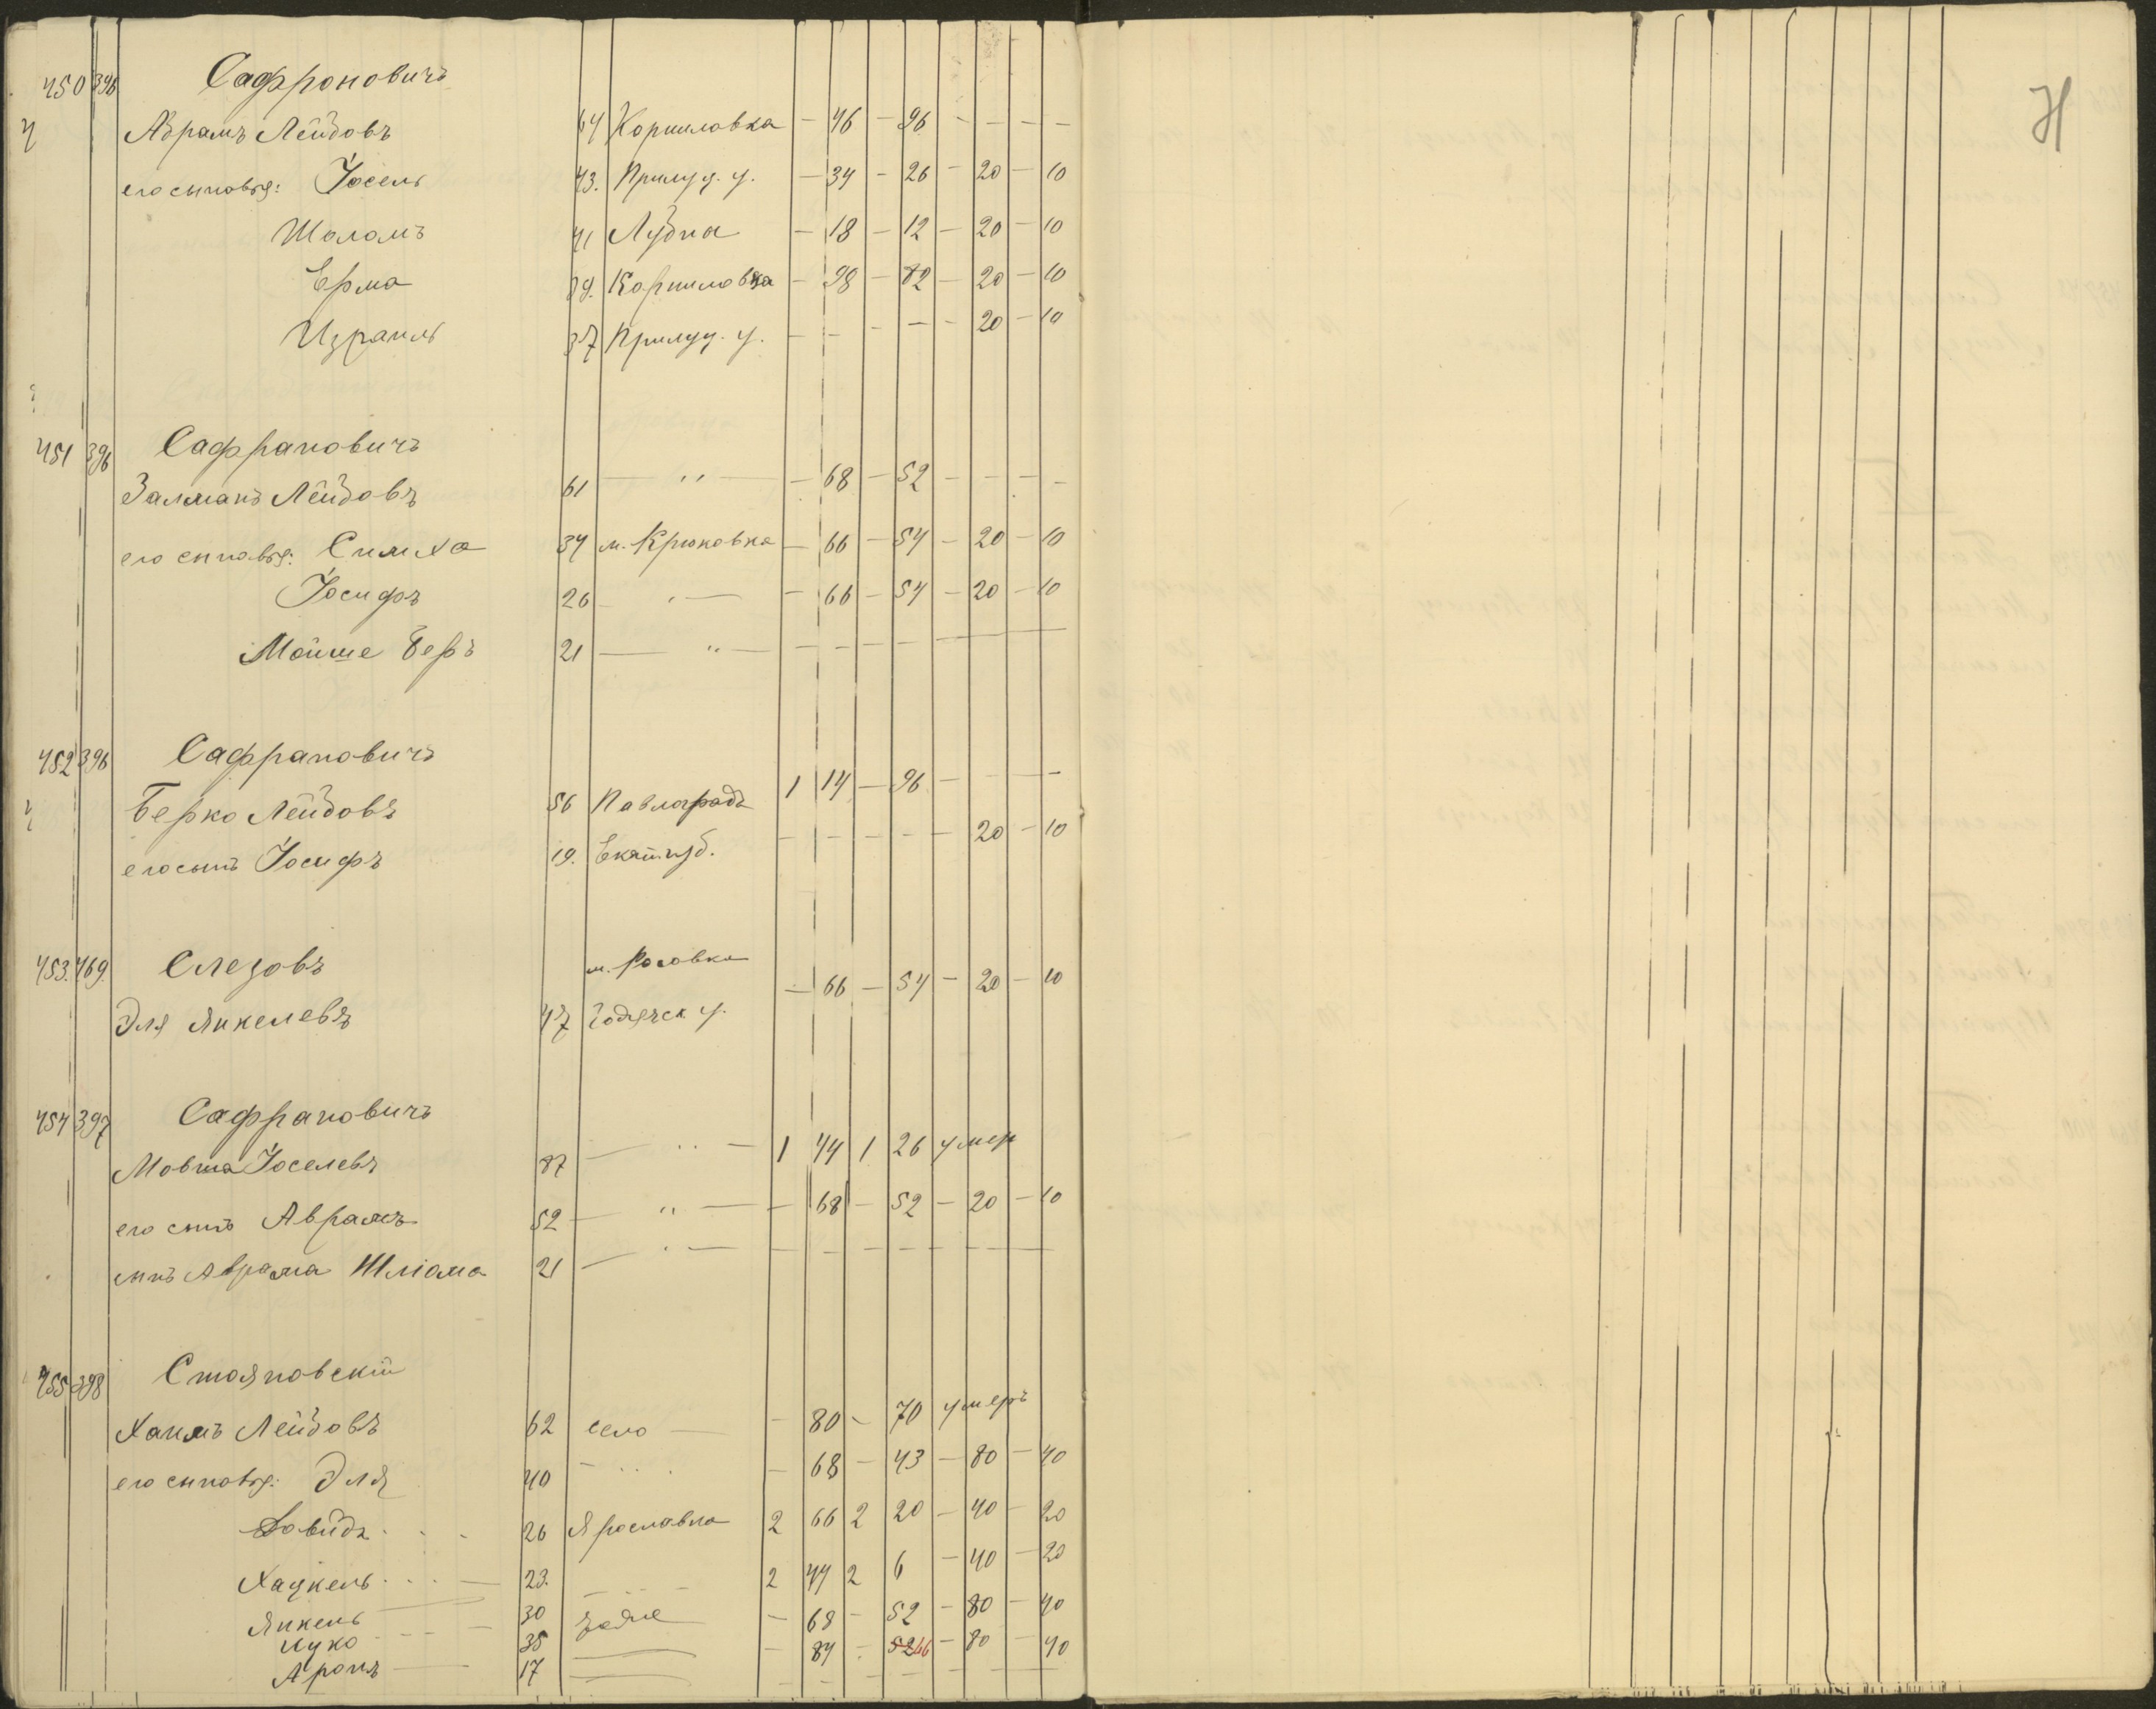 450 396 Сафроновичъ
Абрамъ Лейбовъ 64 Корниловка — 46 — 96 — — — —
его сыновья: Іосель 43. Прилуц. у. — 34 — 26 — 20 — 10
Шоломъ 41 Лубна — 18 — 12 — 20 — 10
Ерма 39. Корниловка — 98 — 82 — 20 — 10
Израиль 37 Прилуц. у. — — — — — 20 — 10
451 396 Сафрановичъ
Залманъ Лейбовъ 61 — " — — 68 — 52 — — — —
его сыновья: Симха 34 м. Крюковка — 66 — 54 — 20 — 10
Іосифъ 26 — " — — 66 — 54 — 20 — 10
Мойше Беръ 21 — " — — — — — —
452 396 Сафрановичъ
Берко Лейбовъ 56 Павлоградъ 1 14 — 96 — — — —
его сынъ Іосифъ 19. Екат. губ. — — — — — 20 — 10
453. 469. Слезовъ м. Рогoвка
Эля Янкелевъ 47 Годячск. у. — 66 — 54 — 20 — 10
454 397 Сафрановичъ
Мовша Іоселевъ 87 — " — 1 44 1 26 умер
его сынъ Аврамъ 52 — " — — 68 — 52 — 20 — 10
сынъ Аврама Шліома 21 — " — — — — — —
455 398 Стояновскій
Хаимъ Лейбовъ 62 село — — 80 — 70 умеръ
его сыновья: Эля 40 — " — — 68 — 43 — 80 — 40
Довидъ 26 Ярославла 2 66 2 20 — 40 — 20
Хацкель 23. — " — 2 44 2 6 — 40 — 20
Янкель 30 — 68 — 52 — 80 — 40
Ицко 35 — 84 — 52 66 — 80 — 40
Аронъ 17 — — — — — —